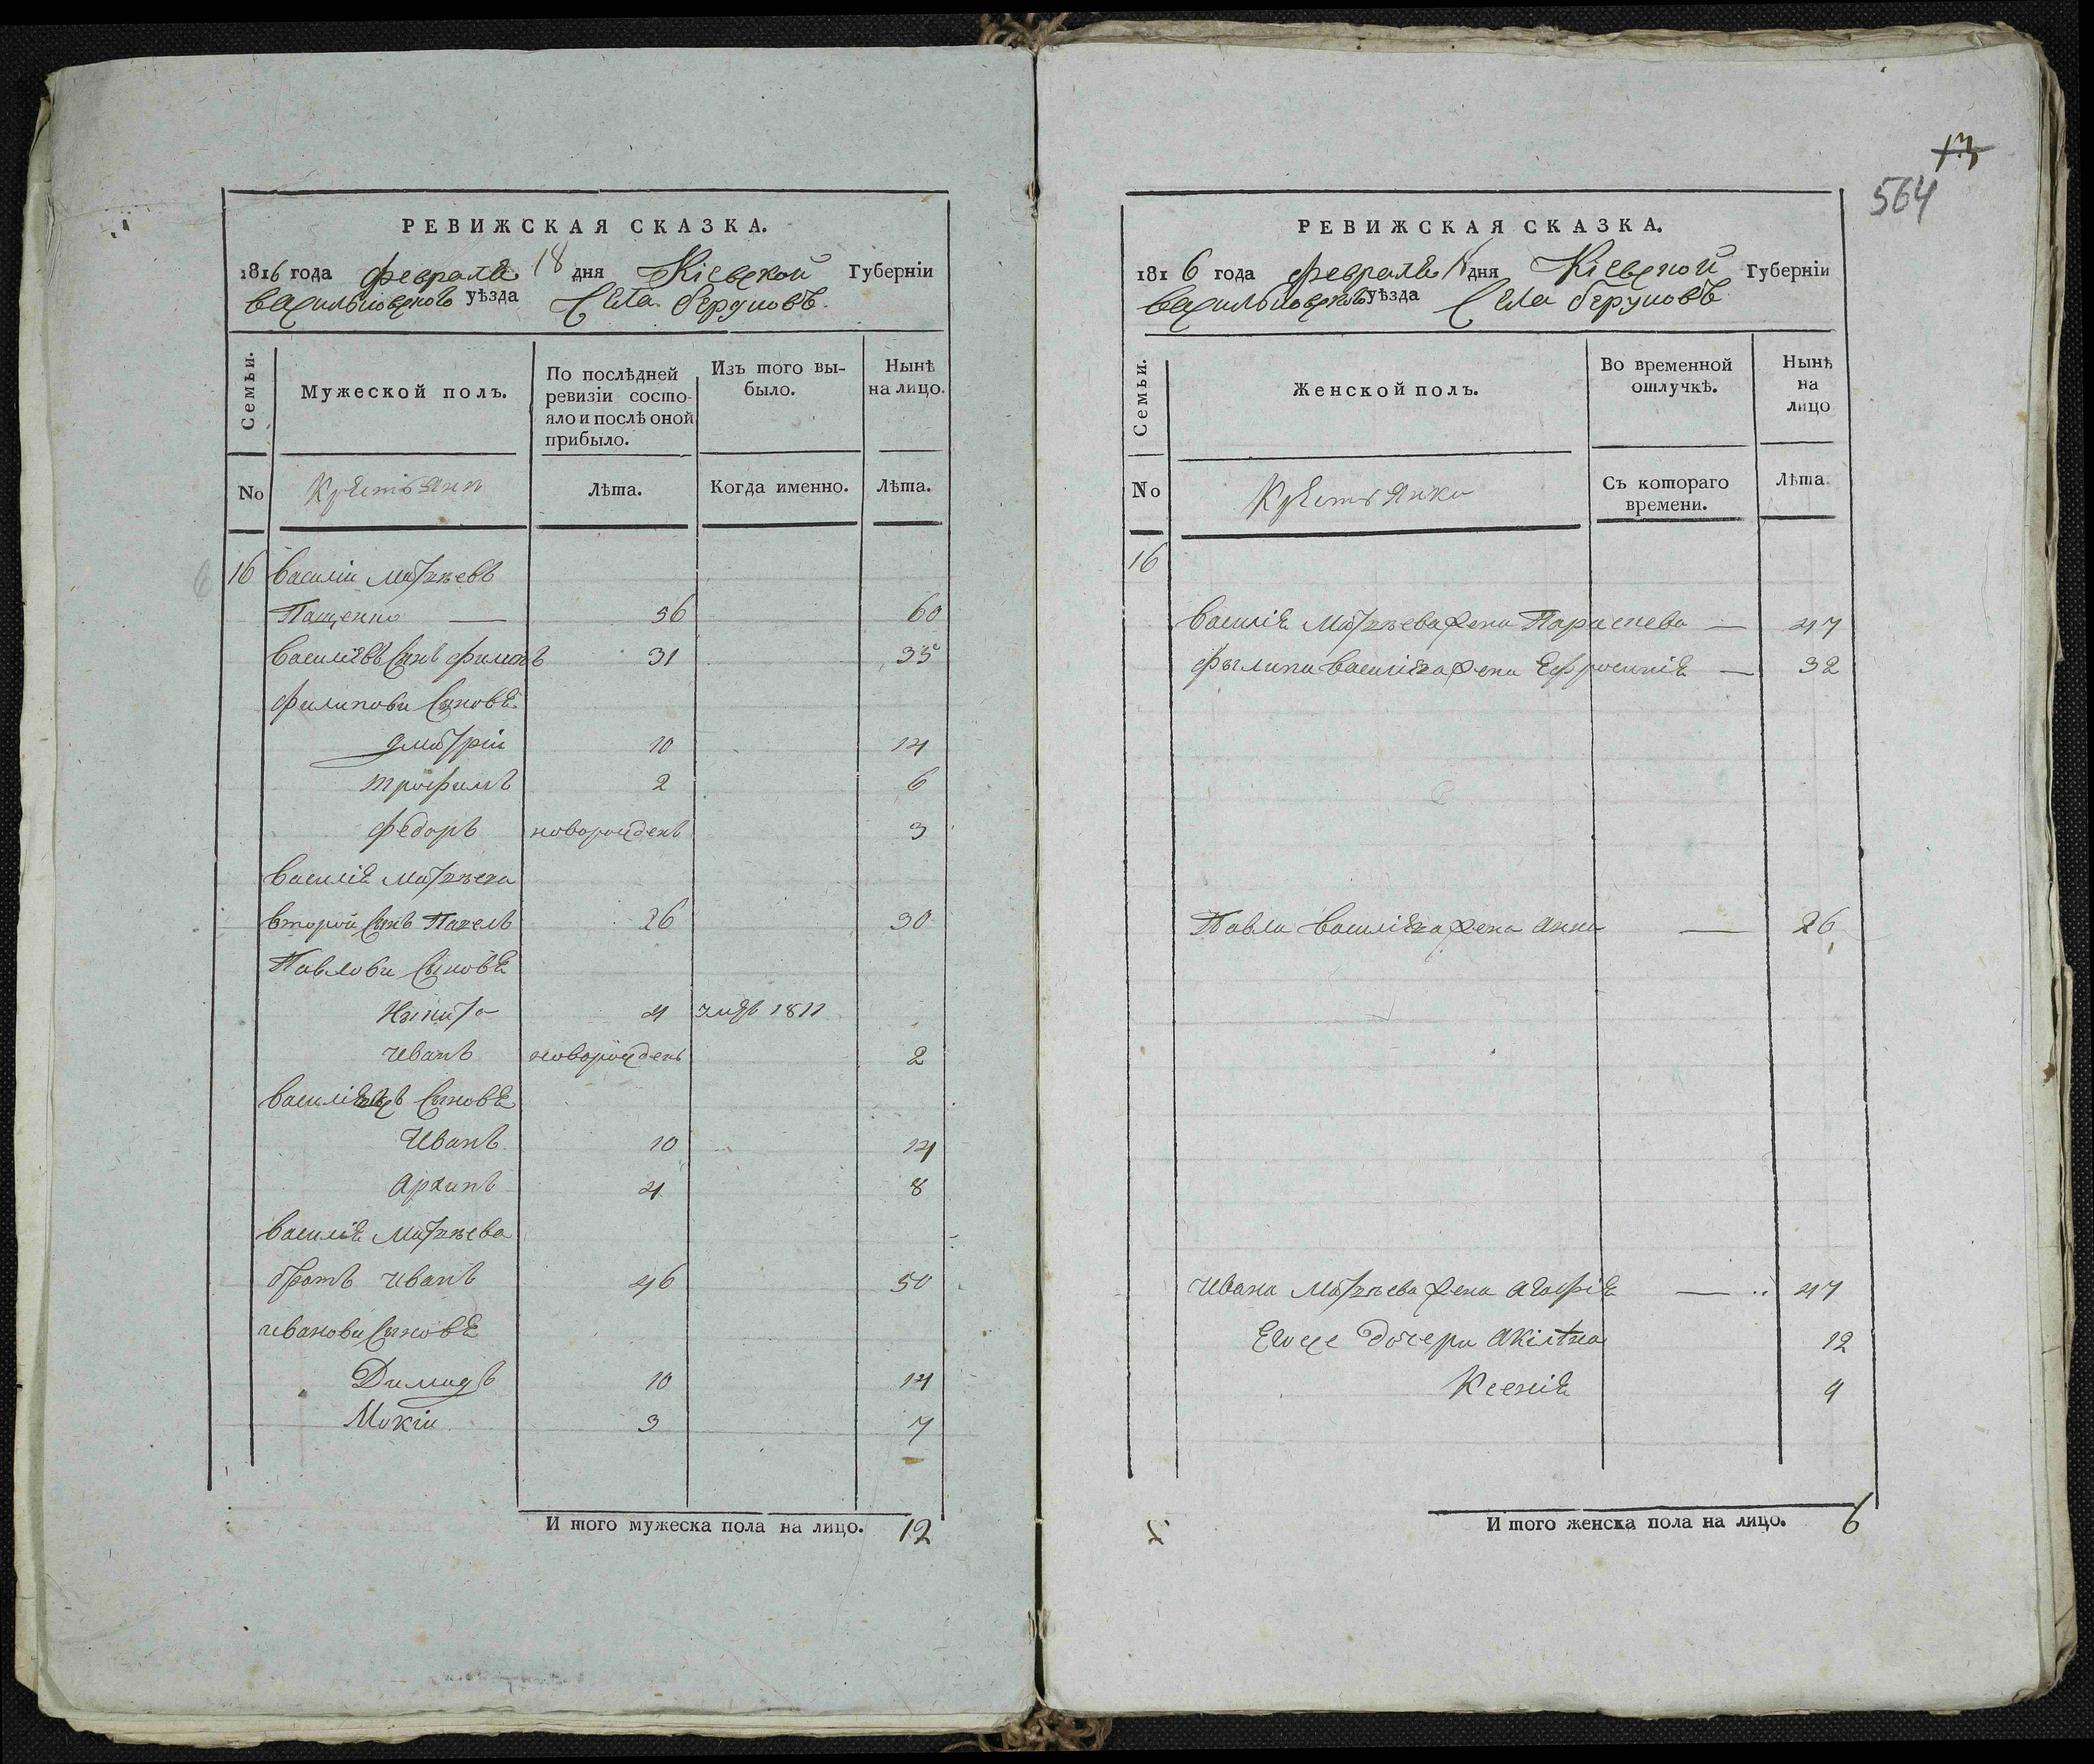 РЕВИЖСКАЯ СКАЗКА.
1816 года февраля 18 дня Кіевской Губерніи
васильковского уѣзда Села беруновъ
Семьи.
Мужеской полъ.
По послѣдней ревизіи состояло и послѣ оной прибыло.
Изъ того выбыло.
Нынѣ на лицо.
No
Крестьяни
Лѣта.
Когда именно.
Лѣта.
16 Василіи Матвѣевъ
Пащенко — 56 60
Василіевъ Сынъ Филипъ 31 35
Филипови Сыновя
Дмитріи 10 14
Трофимъ 2 6
Федоръ новорожденъ 3
Василія Матвѣева
второй Сынъ Павелъ 26 30
Павлови Сыновя
Никита 4 1811
Иванъ новорожденъ 2
Сыновя
Иванъ 10 14
Архипъ 4 8
Василія Матвѣева
братъ Иванъ 46 50
Иванови Сыновя
Димидъ 10 14
Мокіи 3 7
И того мужеска пола на лицо. 12
13
564
РЕВИЖСКАЯ СКАЗКА.
1816 года февраля 18 дня Кіевской Губерніи
васильковского уѣзда Села беруновъ
Семьи.
Женской полъ.
Во временной отлучкѣ.
Нынѣ на лицо
No
Крестьянки
Съ котораго времени.
Лѣта.
16
Василія Матвѣева жена Параскева — 47
Филипа Василіева жена Ефросинія — 32
Павла Василіева жена Анна — 26
Ивана Матвѣева жена Агафія — 47
Егоже дочери Акилина 12
Ксенія 9
И того женска пола на лицо. 6